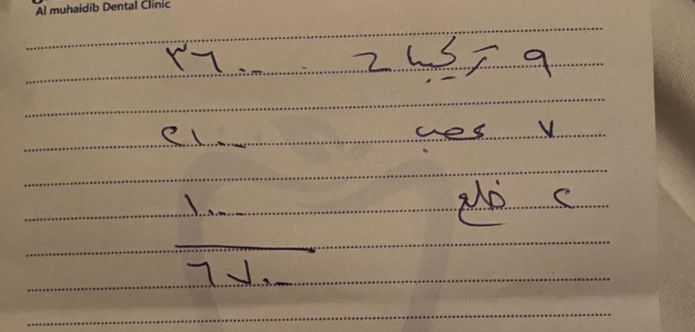 Al muhaidib Dental Clinic
٩ تركيبات ٣٦٠٠
٧ عصب ٢١٠٠
٢ خلع ١٠٠٠
٦٧٠٠